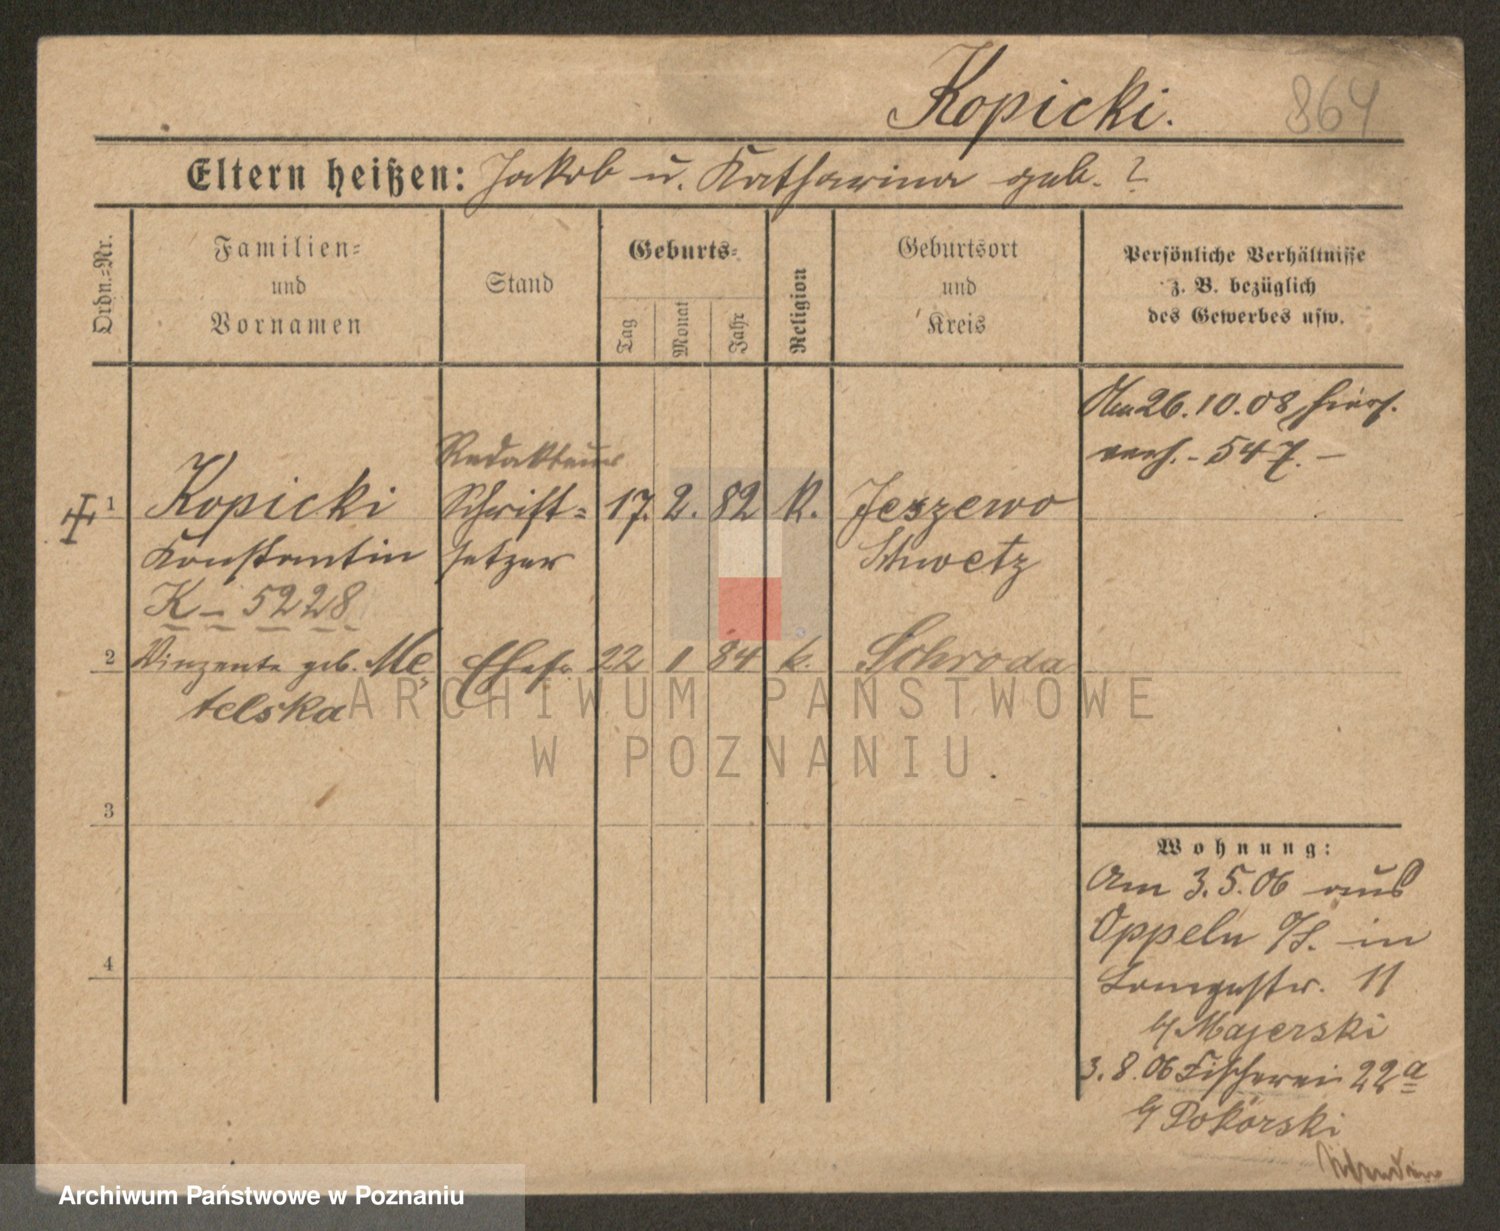 Kopicki.
864
Eltern heißen: Jakob u. Katharina geb. ?
Ordn.-Nr.
Familien-
und
Vornamen
Stand
Geburts-
Tag
Monat
Jahr
Religion
Geburtsort
und
Kreis
Persönliche Verhältnisse
z. B. bezüglich
des Gewerbes usw.
Am 26.10.08 hiers.
verh. - 547. -
Redakteur
1 Kopicki Schrift- 17. 2. 82 K. Jeszewo
Konstantin setzer Schwetz
K - 5228
2 Vinzenta geb. Me- Ehefr. 22 1 84 k. Schroda
telska
ARCHIWUM PAŃSTWOWE
W POZNANIU
3
4
Wohnung:
Am 3.5.06 aus
Oppeln O/S. in
Langestr. 11
b/ Majerski
3.8.06 Fischerei 22a
b/ Pokorski
Archiwum Państwowe w Poznaniu